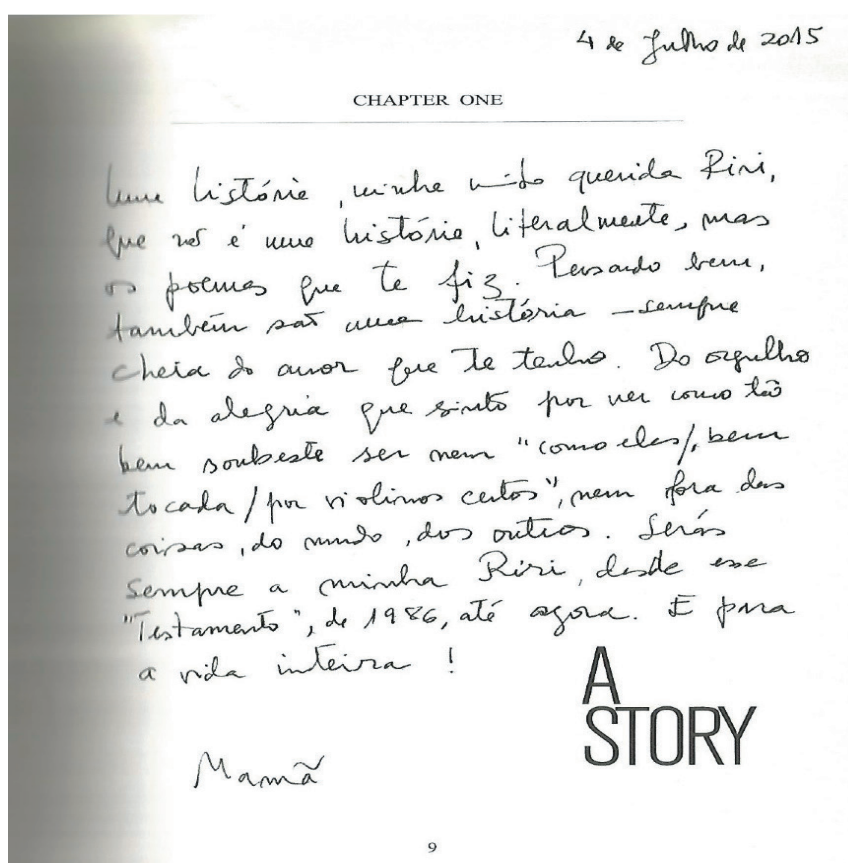 4 de Julho de 2015
CHAPTER ONE
Uma história, minha muito querida Riri,
que não é uma história, literalmente, mas
os poemas que te fiz. Pensando bem,
também são uma história – sempre
cheia do amor que te tenho. Do orgulho
e da alegria que sinto por ver como tão
bem soubeste ser nem "como eles/, bem
tocada / por violinos certos", nem fora das
coisas, do mundo, dos outros. Serás
sempre a minha Riri, desde esse
"Testamento", de 1986, até agora. E para
a vida inteira !
A
STORY
Mamã
9